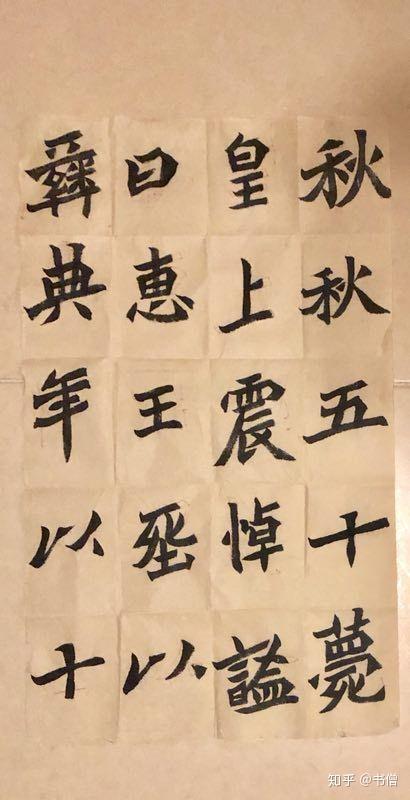 秋秋五十薨
皇上震悼謚
曰恵王以
彝典年以十
知乎 @书僧